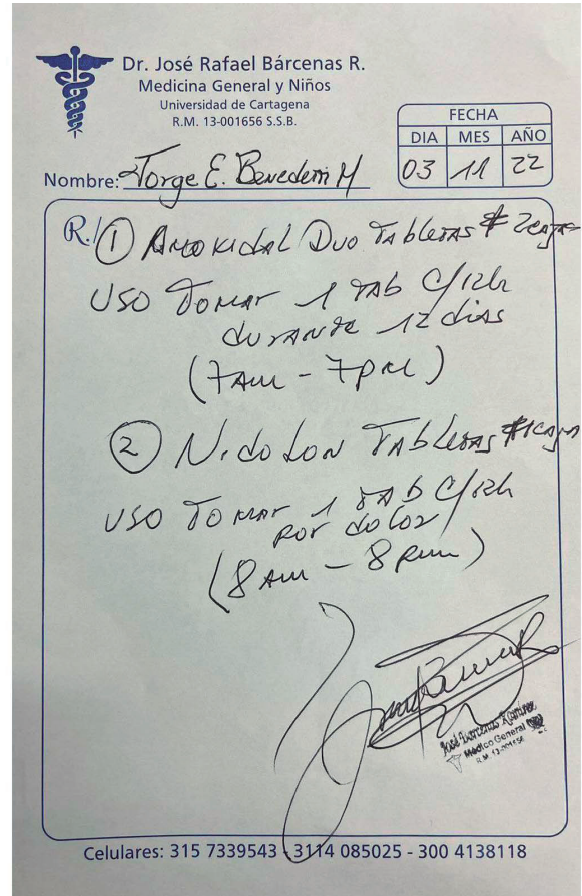 Dr. José Rafael Bárcenas R.
Medicina General y Niños
Universidad de Cartagena
R.M. 13-001656 S.S.B.
FECHA
DIA MES AÑO
03 11 22
Nombre: Jorge E. Benedetti M
R./ ① Amoxidal Duo Tabletas # 2cajas
USO TOMAR 1 TAB C/12h
durante 12 dias
(7AM - 7PM)
② Nidolon Tabletas #1caja
USO TOMAR 1 TAB C/12h
por dolor
(8AM - 8PM)
José Bárcenas Ramírez
Médico General
R.M. 13-001656
Celulares: 315 7339543 - 3114 085025 - 300 4138118